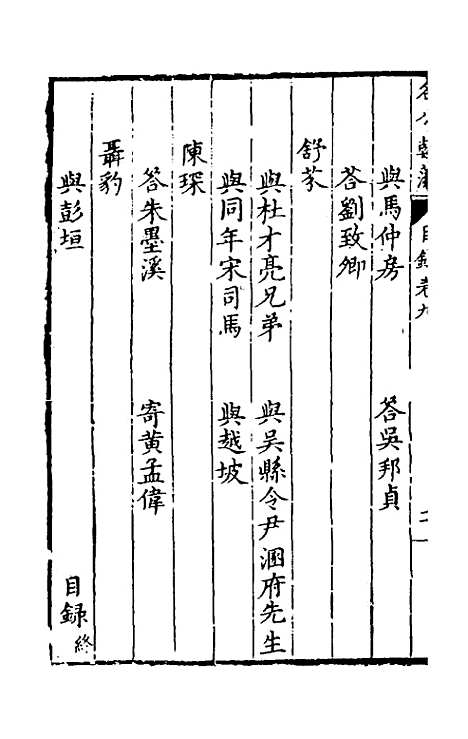 與馬仲房　答吳邦貞
答劉致卿
舒芬
與杜才亮兄弟　與吳縣令尹涃府先生
與同年宋司馬　與越坡
陳琛
答朱墨溪　寄黃孟偉
聶豹
與彭垣　目録終